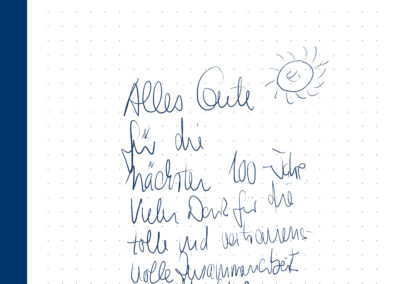 Alles Gute
für die
nächsten 100 Jahre
Vielen Dank für die
tolle und vertrauens-
volle Zusammenarbeit